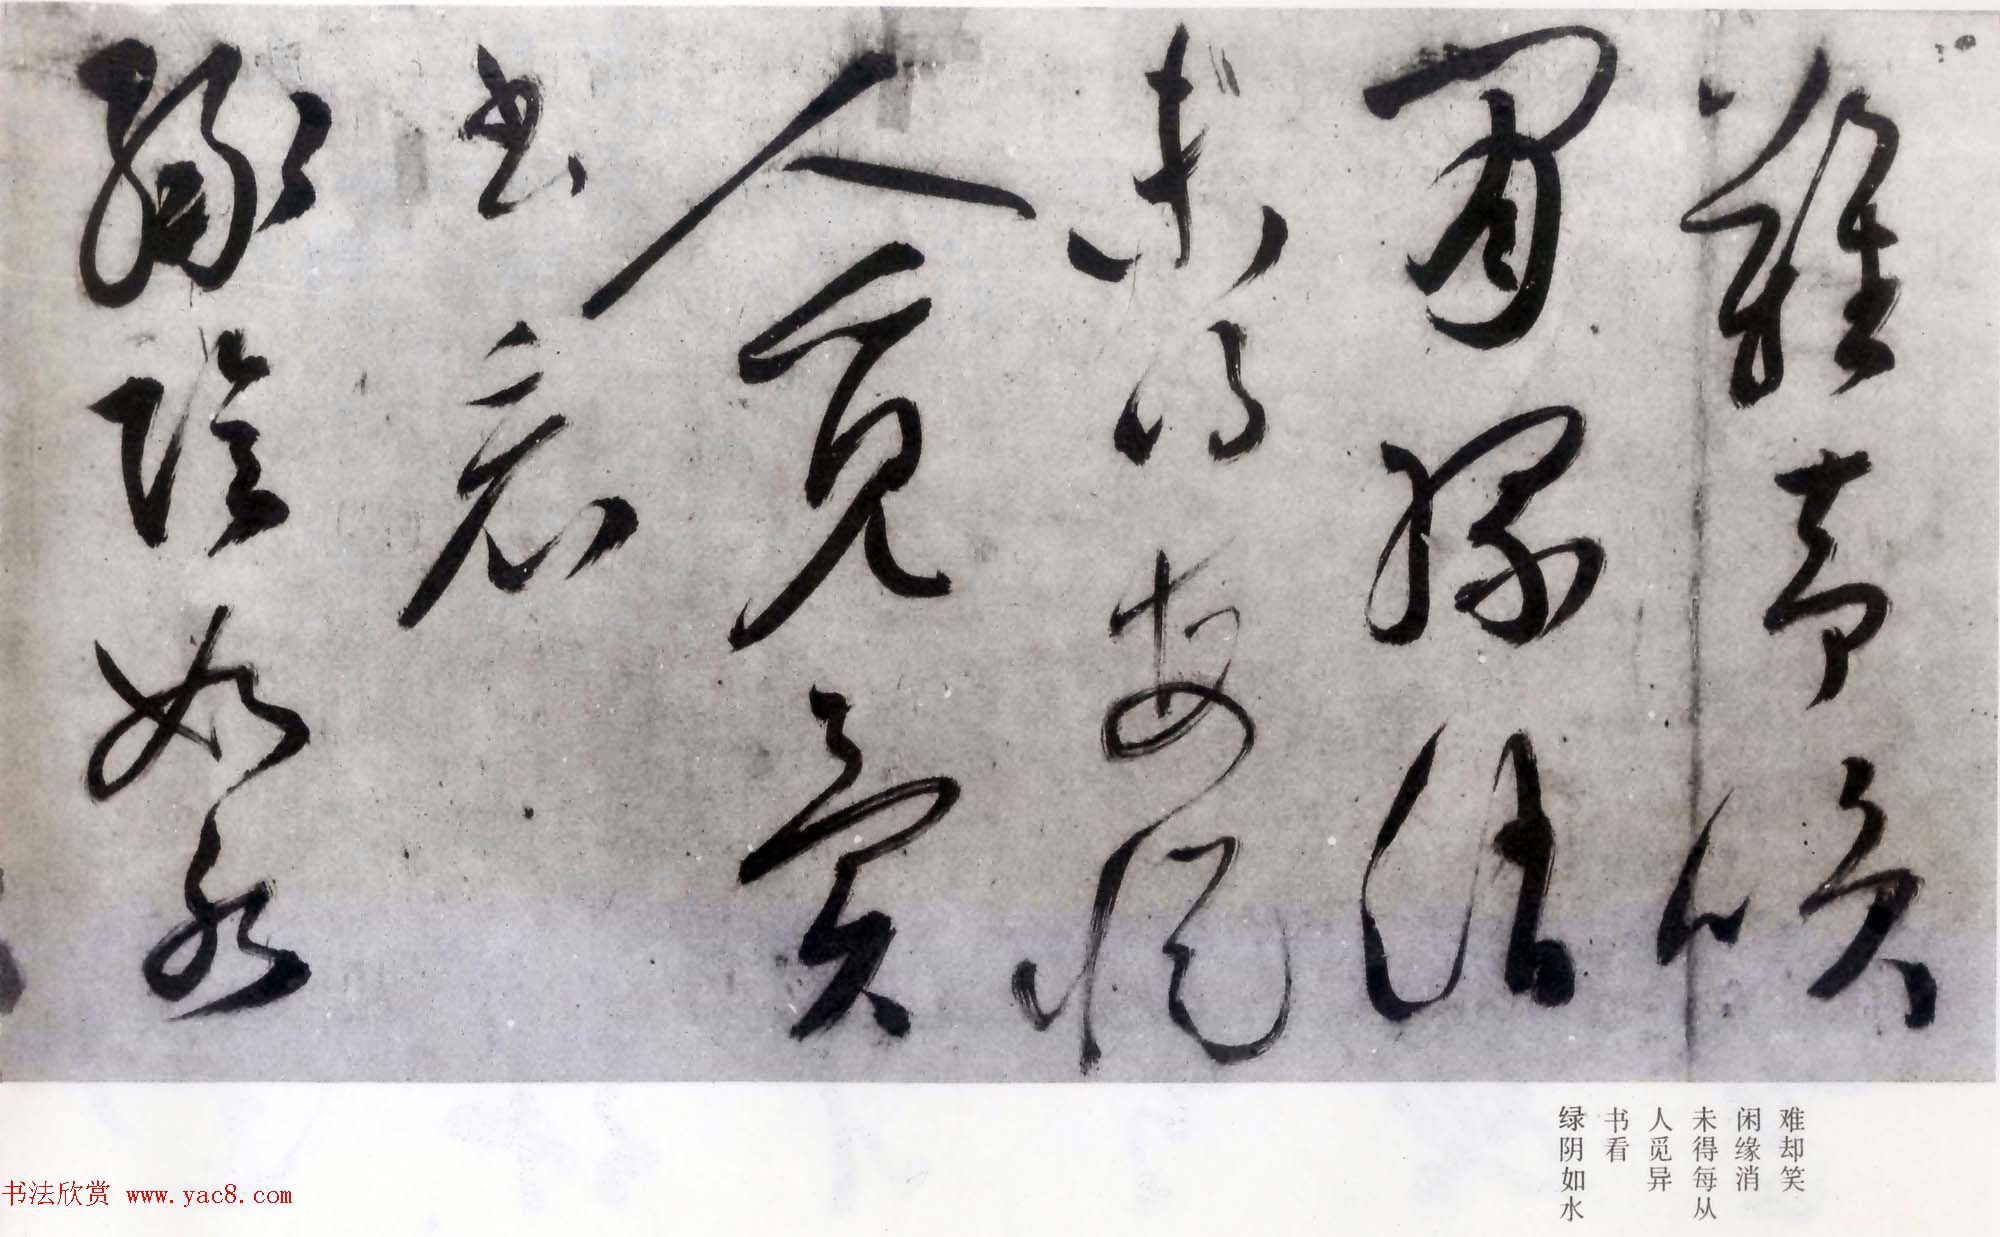 難却咲
閒緣消
未得每從
人覓異
書看
綠陰如水
难却笑
闲缘消
未得每从
人觅异
书看
绿阴如水
书法欣赏 www.yac8.com